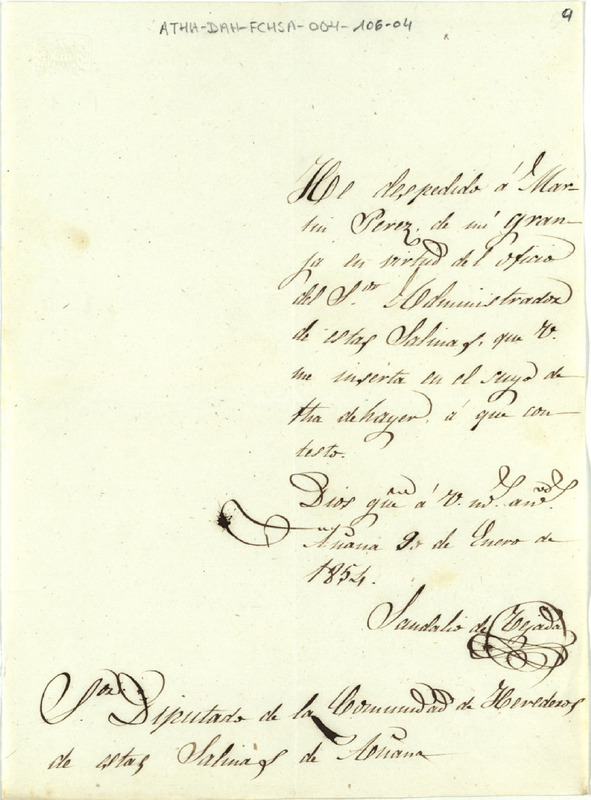 9
ATHH-DAH-FCHSA-004-106-04
He despedido á Mar-
tin Perez, de mi gran-
ja en virtud del oficio
del S.or Administrador
de estas Salinas, que V.
me inserta en el suyo de
fha de hayer, á que con-
testo.
Dios gue á V. ms. as.
Añana 9 de Enero de
1854.
Sandalio de Tejada
S.or Diputado de la Comunidad de Herederos
de estas Salinas de Añana